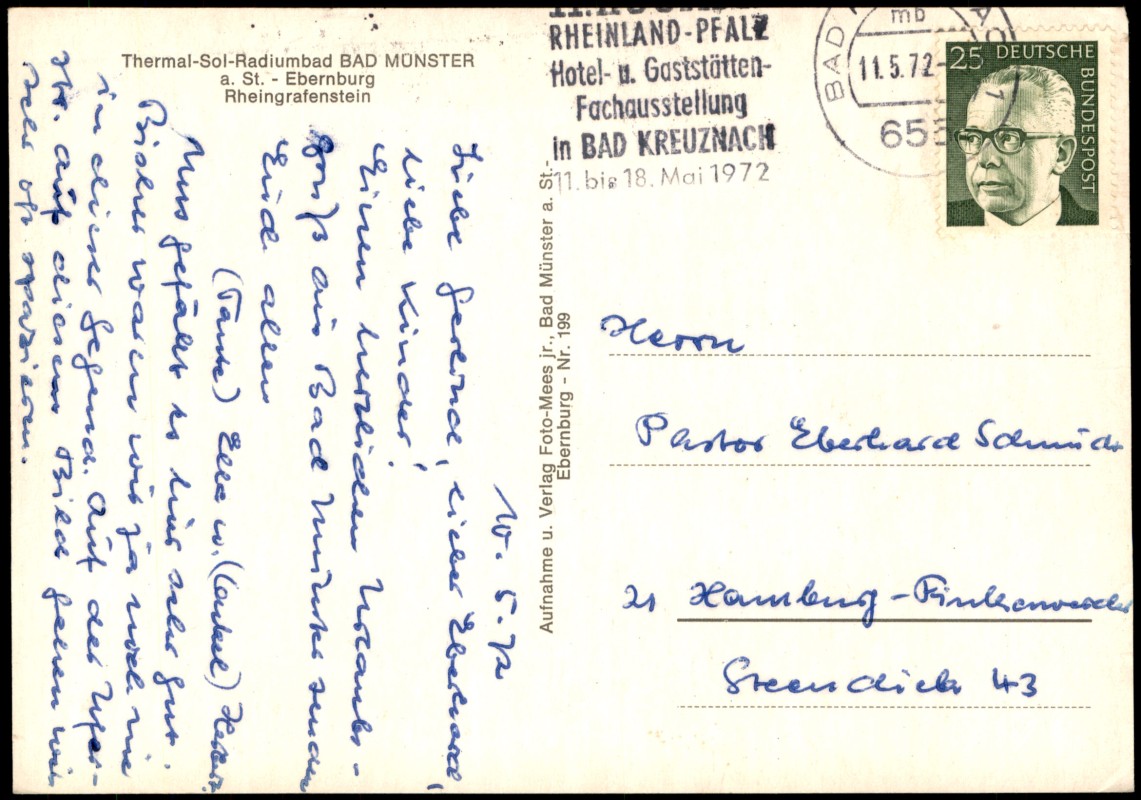 Thermal-Sol-Radiumbad BAD MÜNSTER
a. St. - Ebernburg
Rheingrafenstein
10. 5. 72
Liebe Gerlinde, lieber Eberhard,
liebe Kinder!
Einen herzlichen Urlaubs-
gruß aus Bad Münster senden
Euch allen
(Tante) Ella u. (Onkel)
Uns gefällt es hier sehr gut.
Bisher waren wir ja noch nie
in dieser Gegend. Auf der Ufer-
str. auf diesem Bild gehen wir
sehr oft spazieren.
Aufnahme u. Verlag Foto-Mees jr., Bad Münster a. St.-
Ebernburg - Nr. 199
RHEINLAND-PFALZ
Hotel- u. Gaststätten-
Fachausstellung
in BAD KREUZNACH
11. bis 18. Mai 1972
BAD
mb
11.5.72-
1
655
25 DEUTSCHE
BUNDESPOST
Herrn
Pastor Eberhard
21 Hamburg-Finkenwerder
Steendiek 43